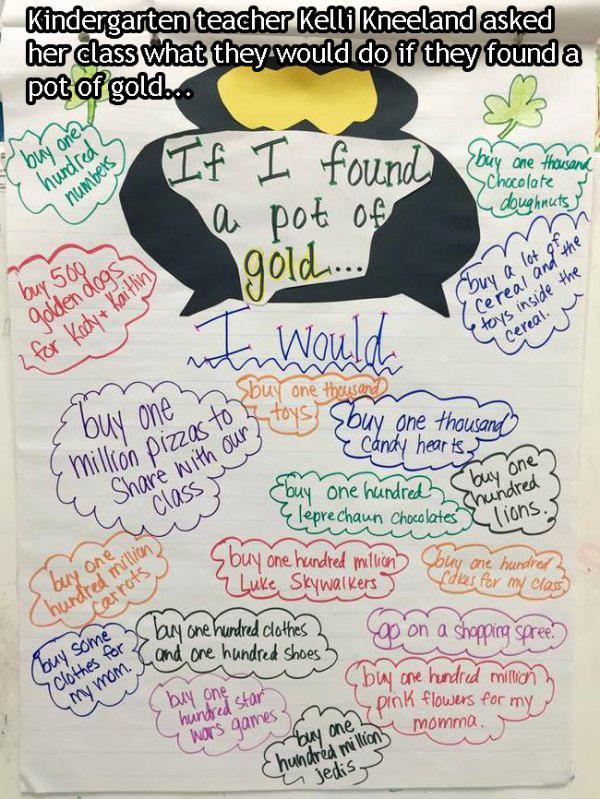 Kindergarten teacher Kelli Kneeland asked
her class what they would do if they found a
pot of gold...
If I found
a pot of
gold...
I would
buy one
hundred
numbers
buy one thousand
Chocolate
doughnuts
buy 500
golden dogs
for Kody + Kaitlin
buy a lot of
cereal and the
toys inside the
cereal.
buy one thousand
toys
buy one
million pizzas to
Share with our
class
buy one thousand
Candy hearts
buy one hundred
leprechaun Chocolates
buy one
hundred
lions.
buy one
hundred million
carrots
buy one hundred million
Luke Skywalkers
buy one hundred
cakes for my class
buy some
clothes for
my mom.
buy one hundred clothes
and one hundred shoes
go on a shopping spree.
buy one hundred million
pink flowers for my
momma.
buy one
hundred star
wars games
buy one
hundred million
jedis